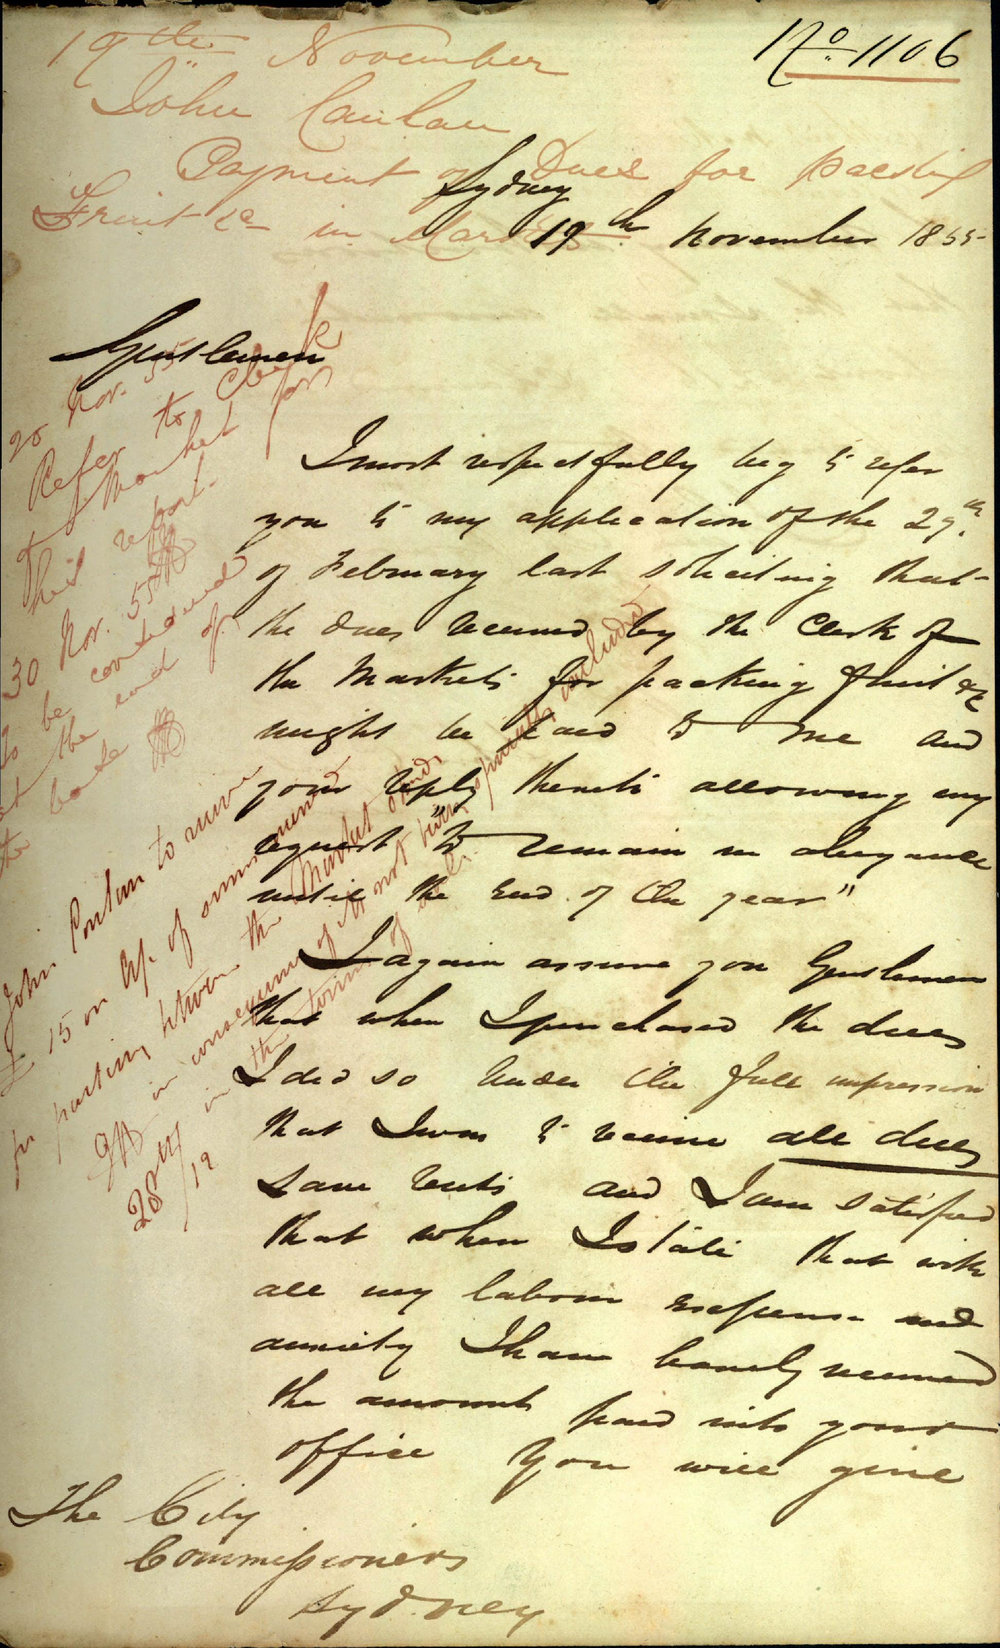 No. 1106
19th November
John
Payment of Dues for packing
Fruit &c in Markets
Sydney
19th November 1855
Gentlemen
I most respectfully beg to refer
you to my application of the 29th
of February last soliciting that
the dues received by the Clerk of
the Markets for packing fruit &c
might be paid to me and
your reply thereto allowing my
request "to remain in abeyance
until the End of the year"
I again assure you Gentlemen
that when I purchased the dues
I did so under the full impression
that I was to receive all dues
save rents and I am satisfied
that when I state that with
all my labour expense and
anxiety I have barely received
the amount paid into your
office You will give
The City
Commissioners
Sydney
20 Nov. 55
Refer to Clerk
of Market for
his report.
30 Nov. 55
To be considered
at the end of
the lease
John to receive
£15 on a/c of
for packing between the Market
in consequence of its not being specially included
in the terms of
28th/12